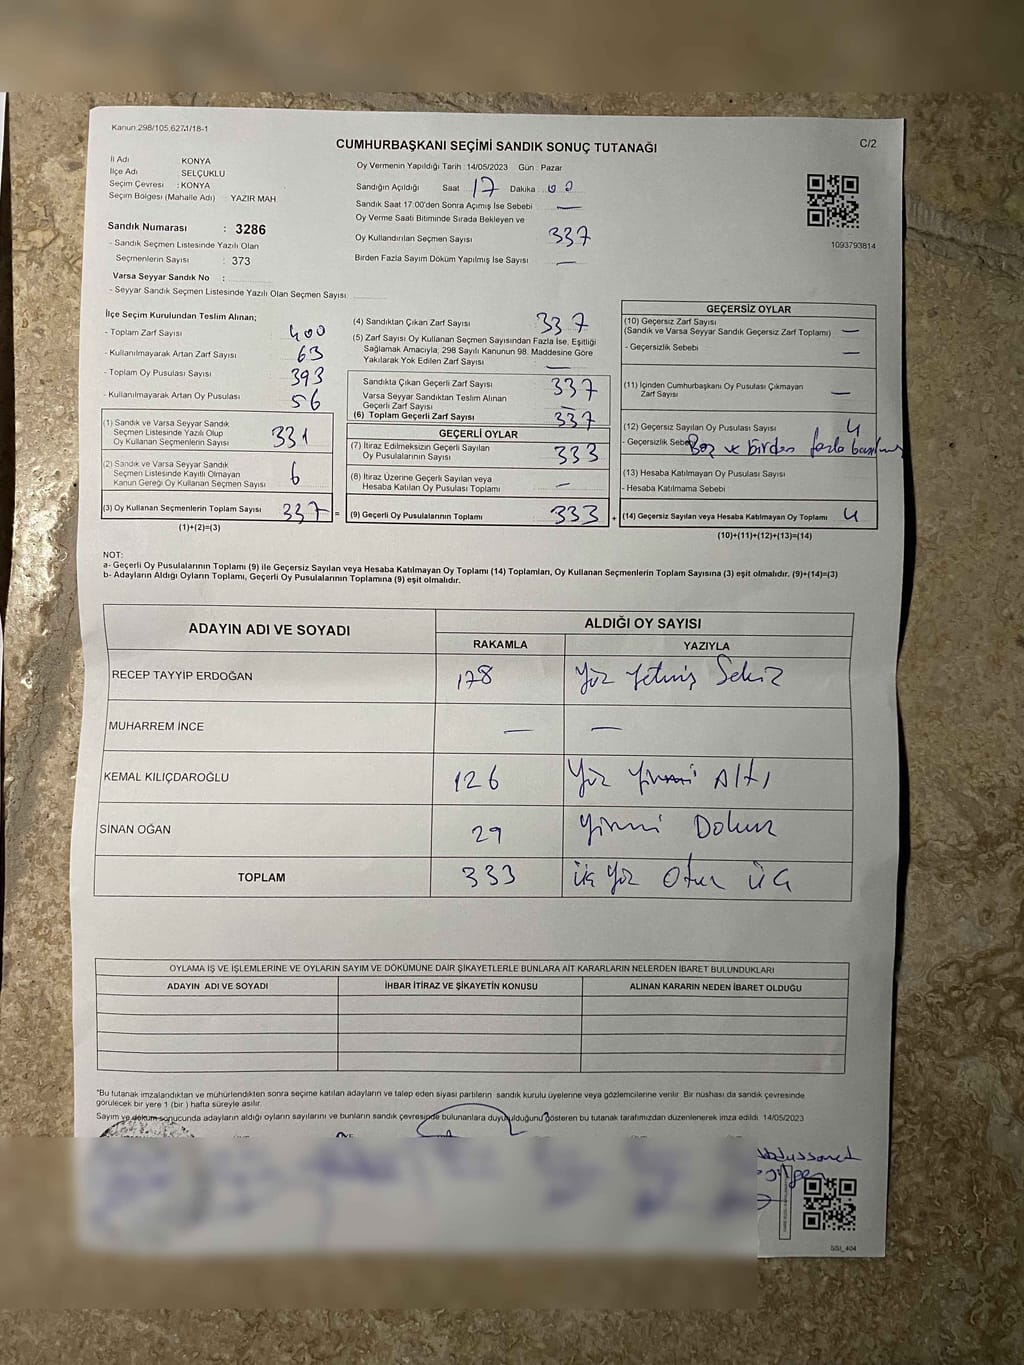 Kanun 298/105,627.1/18-1
CUMHURBAŞKANI SEÇİMİ SANDIK SONUÇ TUTANAĞI
C/2
İl Adı KONYA
İlçe Adı : SELÇUKLU
Seçim Çevresi : KONYA
Seçim Bölgesi (Mahalle Adı) : YAZIR MAH
Sandık Numarası : 3286
- Sandık Seçmen Listesinde Yazılı Olan
Seçmenlerin Sayısı : 373
Varsa Seyyar Sandık No :
- Seyyar Sandık Seçmen Listesinde Yazılı Olan Seçmen Sayısı:
Oy Vermenin Yapıldığı Tarih : 14/05/2023 Gün : Pazar
Sandığın Açıldığı Saat 17 Dakika 00
Sandık Saat 17:00'den Sonra Açımış İse Sebebi —
Oy Verme Saati Bitiminde Sırada Bekleyen ve
Oy Kullandırılan Seçmen Sayısı 337
Birden Fazla Sayım Döküm Yapılmış İse Sayısı —
1093793814
İlçe Seçim Kurulundan Teslim Alınan;
- Toplam Zarf Sayısı 400
- Kullanılmayarak Artan Zarf Sayısı 63
- Toplam Oy Pusulası Sayısı 393
- Kullanılmayarak Artan Oy Pusulası 56
(1) Sandık ve Varsa Seyyar Sandık
Seçmen Listesinde Yazılı Olup
Oy Kullanan Seçmenlerin Sayısı 331
(2) Sandık ve Varsa Seyyar Sandık
Seçmen Listesinde Kayıtlı Olmayan
Kanun Gereği Oy Kullanan Seçmen Sayısı 6
(3) Oy Kullanan Seçmenlerin Toplam Sayısı 337 =
(1)+(2)=(3)
(4) Sandıktan Çıkan Zarf Sayısı 337
(5) Zarf Sayısı Oy Kullanan Seçmen Sayısından Fazla İse, Eşitliği
Sağlamak Amacıyla, 298 Sayılı Kanunun 98. Maddesine Göre
Yakılarak Yok Edilen Zarf Sayısı —
Sandıkta Çıkan Geçerli Zarf Sayısı 337
Varsa Seyyar Sandıktan Teslim Alınan
Geçerli Zarf Sayısı —
(6) Toplam Geçerli Zarf Sayısı 337
GEÇERLİ OYLAR
(7) İtiraz Edilmeksizin Geçerli Sayılan
Oy Pusulalarının Sayısı 333
(8) İtiraz Üzerine Geçerli Sayılan veya
Hesaba Katılan Oy Pusulası Toplamı —
(9) Geçerli Oy Pusulalarının Toplamı 333 +
GEÇERSİZ OYLAR
(10) Geçersiz Zarf Sayısı
(Sandık ve Varsa Seyyar Sandık Geçersiz Zarf Toplamı) —
- Geçersizlik Sebebi —
(11) İçinden Cumhurbaşkanı Oy Pusulası Çıkmayan
Zarf Sayısı —
(12) Geçersiz Sayılan Oy Pusulası Sayısı 4
- Geçersizlik Sebebi Boş ve birden fazla
(13) Hesaba Katılmayan Oy Pusulası Sayısı
- Hesaba Katılmama Sebebi
(14) Geçersiz Sayılan veya Hesaba Katılmayan Oy Toplamı 4
(10)+(11)+(12)+(13)=(14)
NOT:
a- Geçerli Oy Pusulalarının Toplamı (9) ile Geçersiz Sayılan veya Hesaba Katılmayan Oy Toplamı (14) Toplamları, Oy Kullanan Seçmenlerin Toplam Sayısına (3) eşit olmalıdır. (9)+(14)=(3)
b- Adayların Aldığı Oyların Toplamı, Geçerli Oy Pusulalarının Toplamına (9) eşit olmalıdır.
ADAYIN ADI VE SOYADI ALDIĞI OY SAYISI
RAKAMLA YAZIYLA
RECEP TAYYİP ERDOĞAN 178 Yüz Yetmiş Sekiz
MUHARREM İNCE — —
KEMAL KILIÇDAROĞLU 126 Yüz Yirmi Altı
SİNAN OĞAN 29 Yirmi Dokuz
TOPLAM 333 Üç Yüz Otuz Üç
OYLAMA İŞ VE İŞLEMLERİNE VE OYLARIN SAYIM VE DÖKÜMÜNE DAİR ŞİKAYETLERLE BUNLARA AİT KARARLARIN NELERDEN İBARET BULUNDUKLARI
ADAYIN ADI VE SOYADI İHBAR İTİRAZ VE ŞİKAYETİN KONUSU ALINAN KARARIN NEDEN İBARET OLDUĞU
*Bu tutanak imzalandıktan ve mühürlendikten sonra seçime katılan adayların ve talep eden siyasi partilerin sandık kurulu üyelerine veya gözlemcilerine verilir. Bir nüshası da sandık çevresinde
görülecek bir yere 1 (bir) hafta süreyle asılır.
Sayım ve döküm sonucunda adayların aldığı oyların sayılarını ve bunların sandık çevresinde bulunanlara duyurulduğunu gösteren bu tutanak tarafımızdan düzenlenerek imza edildi. 14/05/2023
SSI_404